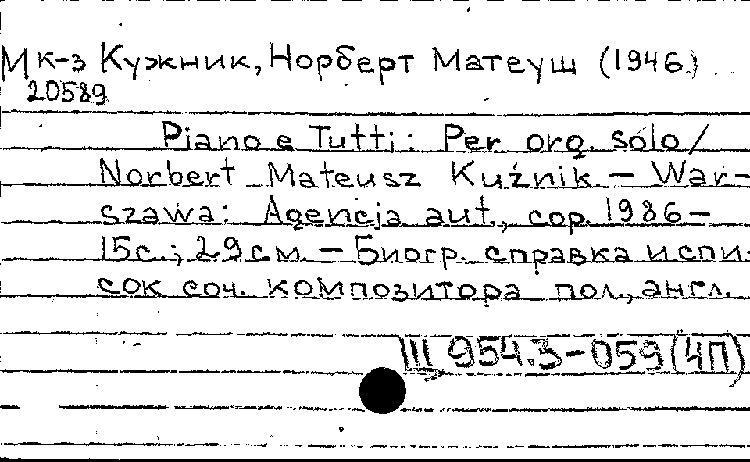 Мк-з Кужник, Норберт Матеуш (1946)
20589
Piano e Tutti: Per org. solo/
Norbert Mateusz Kuźnik. – War-
szawa: Agencja aut., cop. 1986–
15с.; 29см. – Биогр. справка и спи-
сок соч. композитора пол., англ.
Ш 954.3-059(4П)